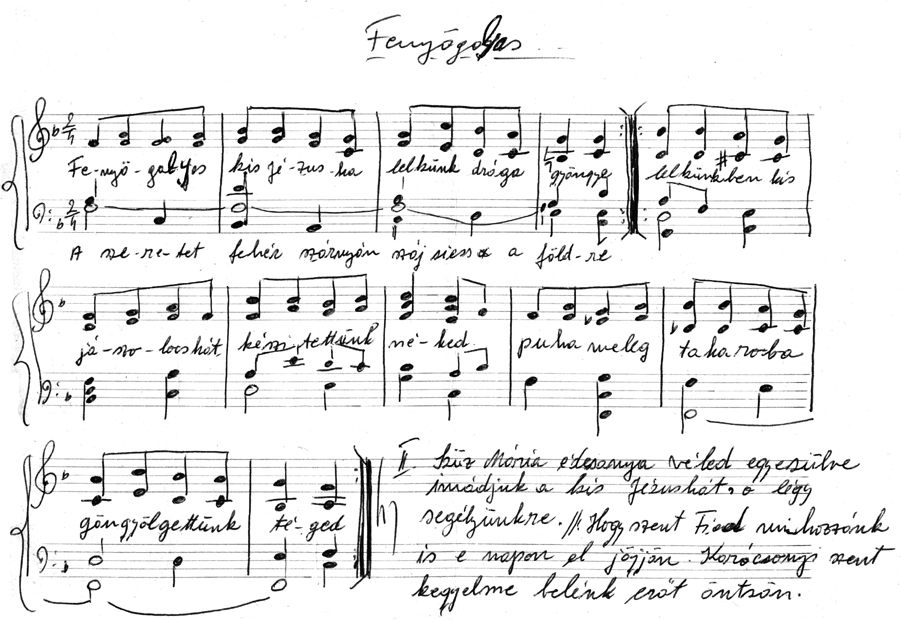 Fenyőgalyas
Fe-nyő-galyas kis Jé-zus-ka lelkünk drága gyöngye lelkünkben kis
A sze-re-tet fehér szárnyán száj a föld-re
já-szo-locskát készítettünk né-ked puha meleg takaróba
göngyölgettünk té-ged
II Szűz Mária édesanya véled egyesülve
imádjuk a kis Jézuskát, ó légy
segélyünkre. // Hogy szent Fiad minhozzánk
is e napon el jöjjön. Karácsonyi szent
kegyelme belénk erőt öntsön.